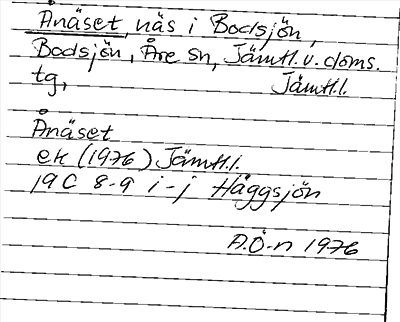 Ånäset, näs i Bodsjön,
Bodsjön, Åre sn, Jämtl. v. doms.
tg, Jämtl.l.
Ånäset
ek (1976) Jämtl.l.
19C 8-9 i-j Häggsjön
A.Ö-n 1976